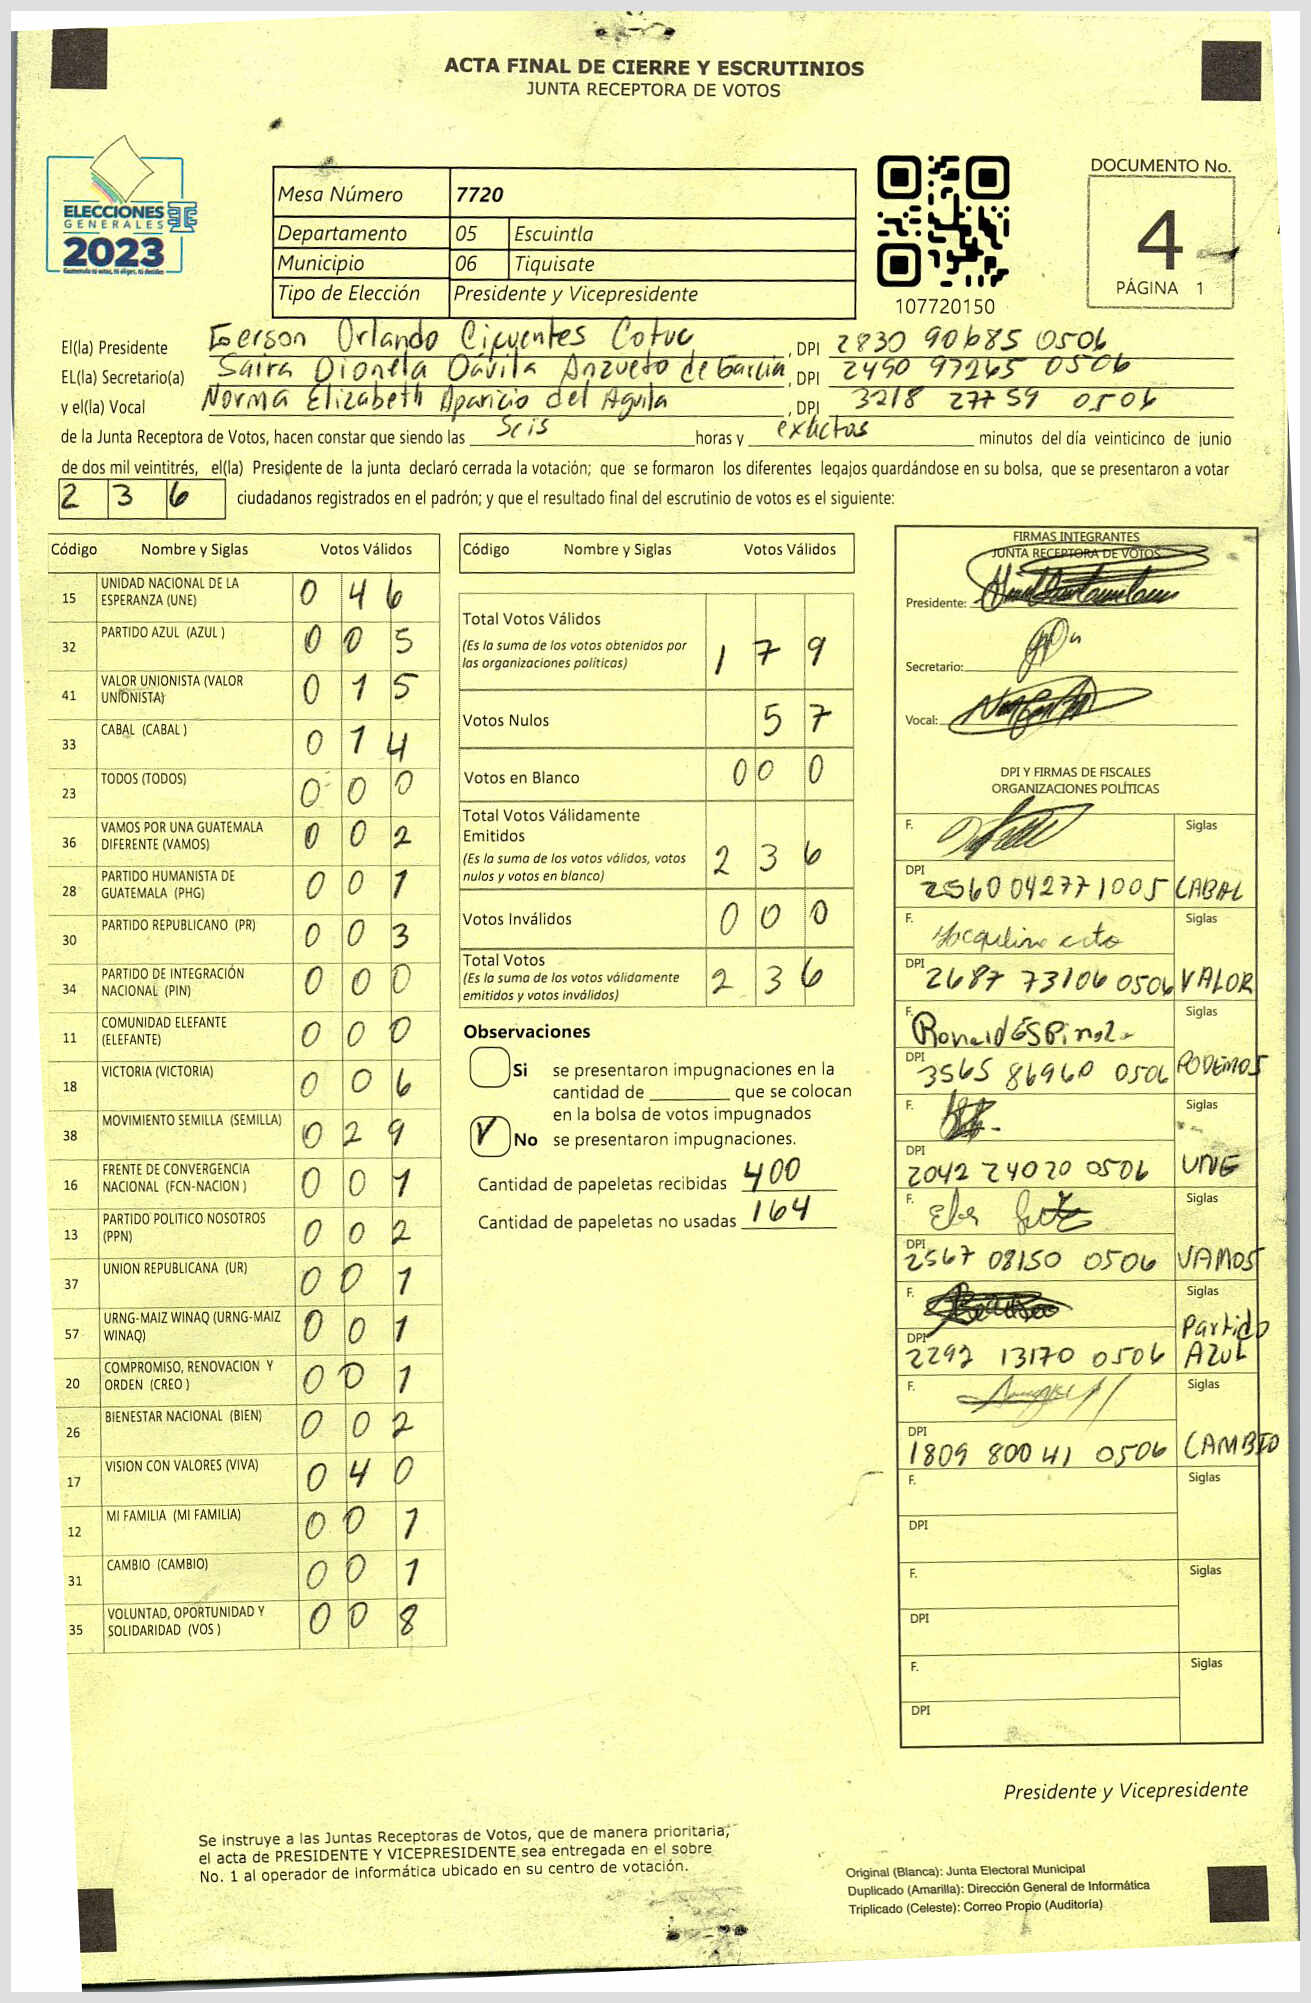 ACTA FINAL DE CIERRE Y ESCRUTINIOS
JUNTA RECEPTORA DE VOTOS
ELECCIONES
GENERALES
2023
Mesa Número 7720
Departamento 05 Escuintla
Municipio 06 Tiquisate
Tipo de Elección Presidente y Vicepresidente
107720150
DOCUMENTO No.
4
PÁGINA 1
El(la) Presidente Gerson Orlando Cifuentes Cotuc, DPI 2830 90685 0506
EL(la) Secretario(a) Saira Dionela Dávila Anzueto de García, DPI 2490 97265 0506
y el(la) Vocal Norma Elizabeth Aparicio del Aguila, DPI 3218 27759 0506
de la Junta Receptora de Votos, hacen constar que siendo las Seis horas y exactas minutos del día veinticinco de junio
de dos mil veintitrés, el(la) Presidente de la junta declaró cerrada la votación; que se formaron los diferentes legajos guardándose en su bolsa, que se presentaron a votar
2 3 6 ciudadanos registrados en el padrón; y que el resultado final del escrutinio de votos es el siguiente:
Código Nombre y Siglas Votos Válidos
15 UNIDAD NACIONAL DE LA ESPERANZA (UNE) 0 4 6
32 PARTIDO AZUL (AZUL ) 0 0 5
41 VALOR UNIONISTA (VALOR UNIONISTA) 0 1 5
33 CABAL (CABAL ) 0 1 4
23 TODOS (TODOS) 0 0 0
36 VAMOS POR UNA GUATEMALA DIFERENTE (VAMOS) 0 0 2
28 PARTIDO HUMANISTA DE GUATEMALA (PHG) 0 0 1
30 PARTIDO REPUBLICANO (PR) 0 0 3
34 PARTIDO DE INTEGRACIÓN NACIONAL (PIN) 0 0 0
11 COMUNIDAD ELEFANTE (ELEFANTE) 0 0 0
18 VICTORIA (VICTORIA) 0 0 6
38 MOVIMIENTO SEMILLA (SEMILLA) 0 2 9
16 FRENTE DE CONVERGENCIA NACIONAL (FCN-NACION ) 0 0 1
13 PARTIDO POLITICO NOSOTROS (PPN) 0 0 2
37 UNION REPUBLICANA (UR) 0 0 1
57 URNG-MAIZ WINAQ (URNG-MAIZ WINAQ) 0 0 1
20 COMPROMISO, RENOVACION Y ORDEN (CREO ) 0 0 1
26 BIENESTAR NACIONAL (BIEN) 0 0 2
17 VISION CON VALORES (VIVA) 0 4 0
12 MI FAMILIA (MI FAMILIA) 0 0 1
31 CAMBIO (CAMBIO) 0 0 1
35 VOLUNTAD, OPORTUNIDAD Y SOLIDARIDAD (VOS ) 0 0 8
Código Nombre y Siglas Votos Válidos
Total Votos Válidos
(Es la suma de los votos obtenidos por las organizaciones políticas) 1 7 9
Votos Nulos 5 7
Votos en Blanco 0 0 0
Total Votos Válidamente Emitidos
(Es la suma de los votos válidos, votos nulos y votos en blanco) 2 3 6
Votos Inválidos 0 0 0
Total Votos
(Es la suma de los votos válidamente emitidos y votos inválidos) 2 3 6
Observaciones
Si se presentaron impugnaciones en la
cantidad de ________ que se colocan
en la bolsa de votos impugnados
No se presentaron impugnaciones.
Cantidad de papeletas recibidas 400
Cantidad de papeletas no usadas 164
FIRMAS INTEGRANTES
JUNTA RECEPTORA DE VOTOS
Presidente:
Secretario:
Vocal:
DPI Y FIRMAS DE FISCALES
ORGANIZACIONES POLÍTICAS
F. Siglas
DPI 2560 04277 1005 CABAL
F. Siglas
DPI 2687 73106 0506 VALOR
F. Ronald Espinoza Siglas
DPI 3565 86960 0506 PODEMOS
F. Siglas
DPI 2042 24020 0506 UNE
F. Siglas
DPI 2567 08150 0506 VAMOS
F. Siglas
DPI 2292 13170 0506 Partido AZUL
F. Siglas
DPI 1809 80041 0506 CAMBIO
F. Siglas
DPI
F. Siglas
DPI
F. Siglas
DPI
Presidente y Vicepresidente
Se instruye a las Juntas Receptoras de Votos, que de manera prioritaria,
el acta de PRESIDENTE Y VICEPRESIDENTE sea entregada en el sobre
No. 1 al operador de informática ubicado en su centro de votación.
Original (Blanca): Junta Electoral Municipal
Duplicado (Amarilla): Dirección General de Informática
Triplicado (Celeste): Correo Propio (Auditoría)